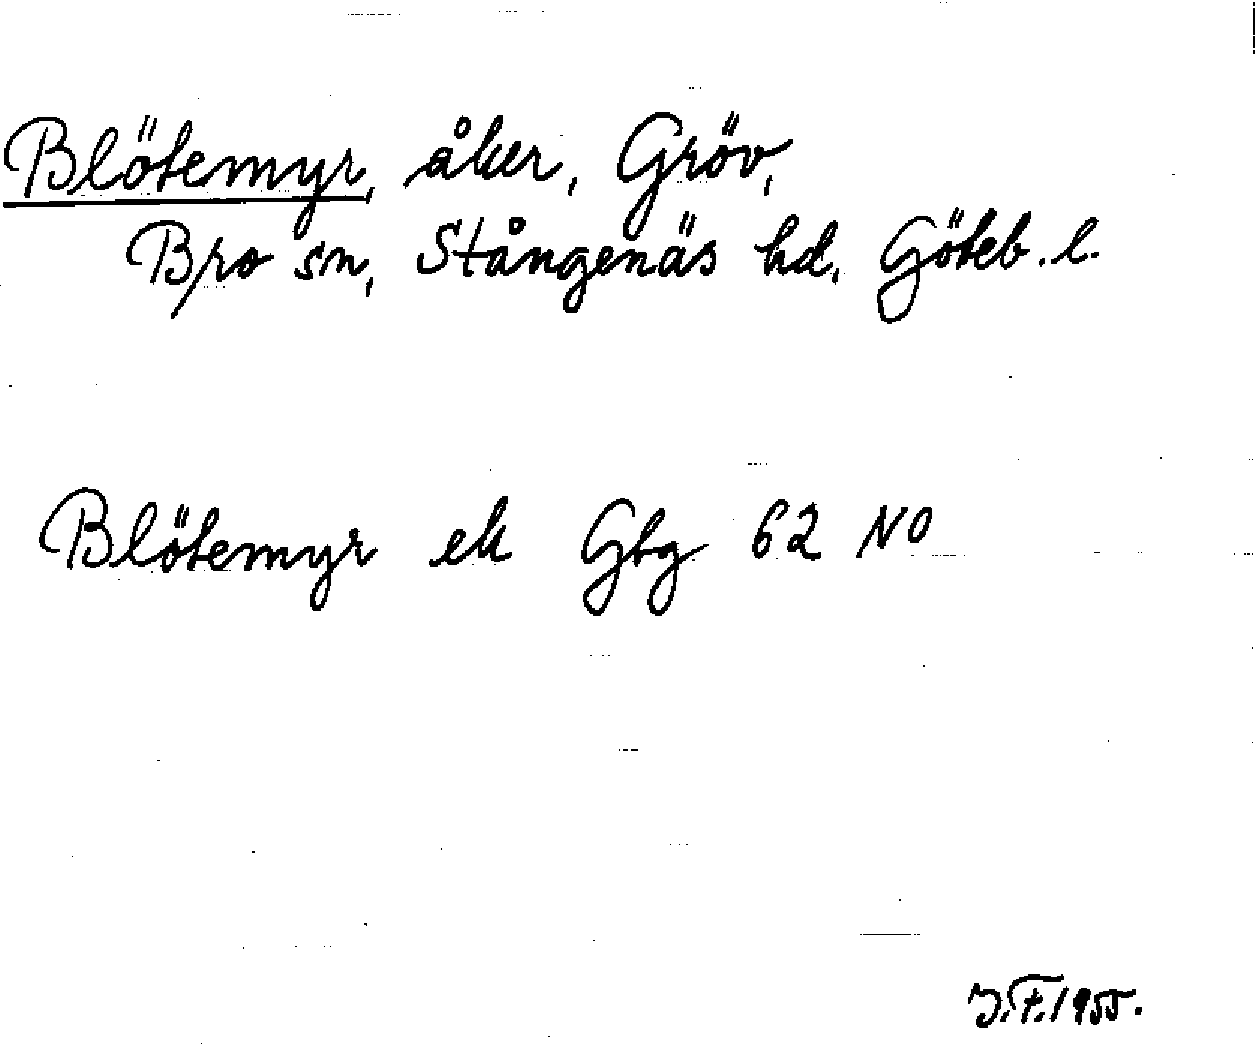 Blötemyr, åker, Gröv,
Bro sn, Stångenäs hd, Göteb. l.
Blötemyr ek Gbg 62 NO
J.F. 1955.